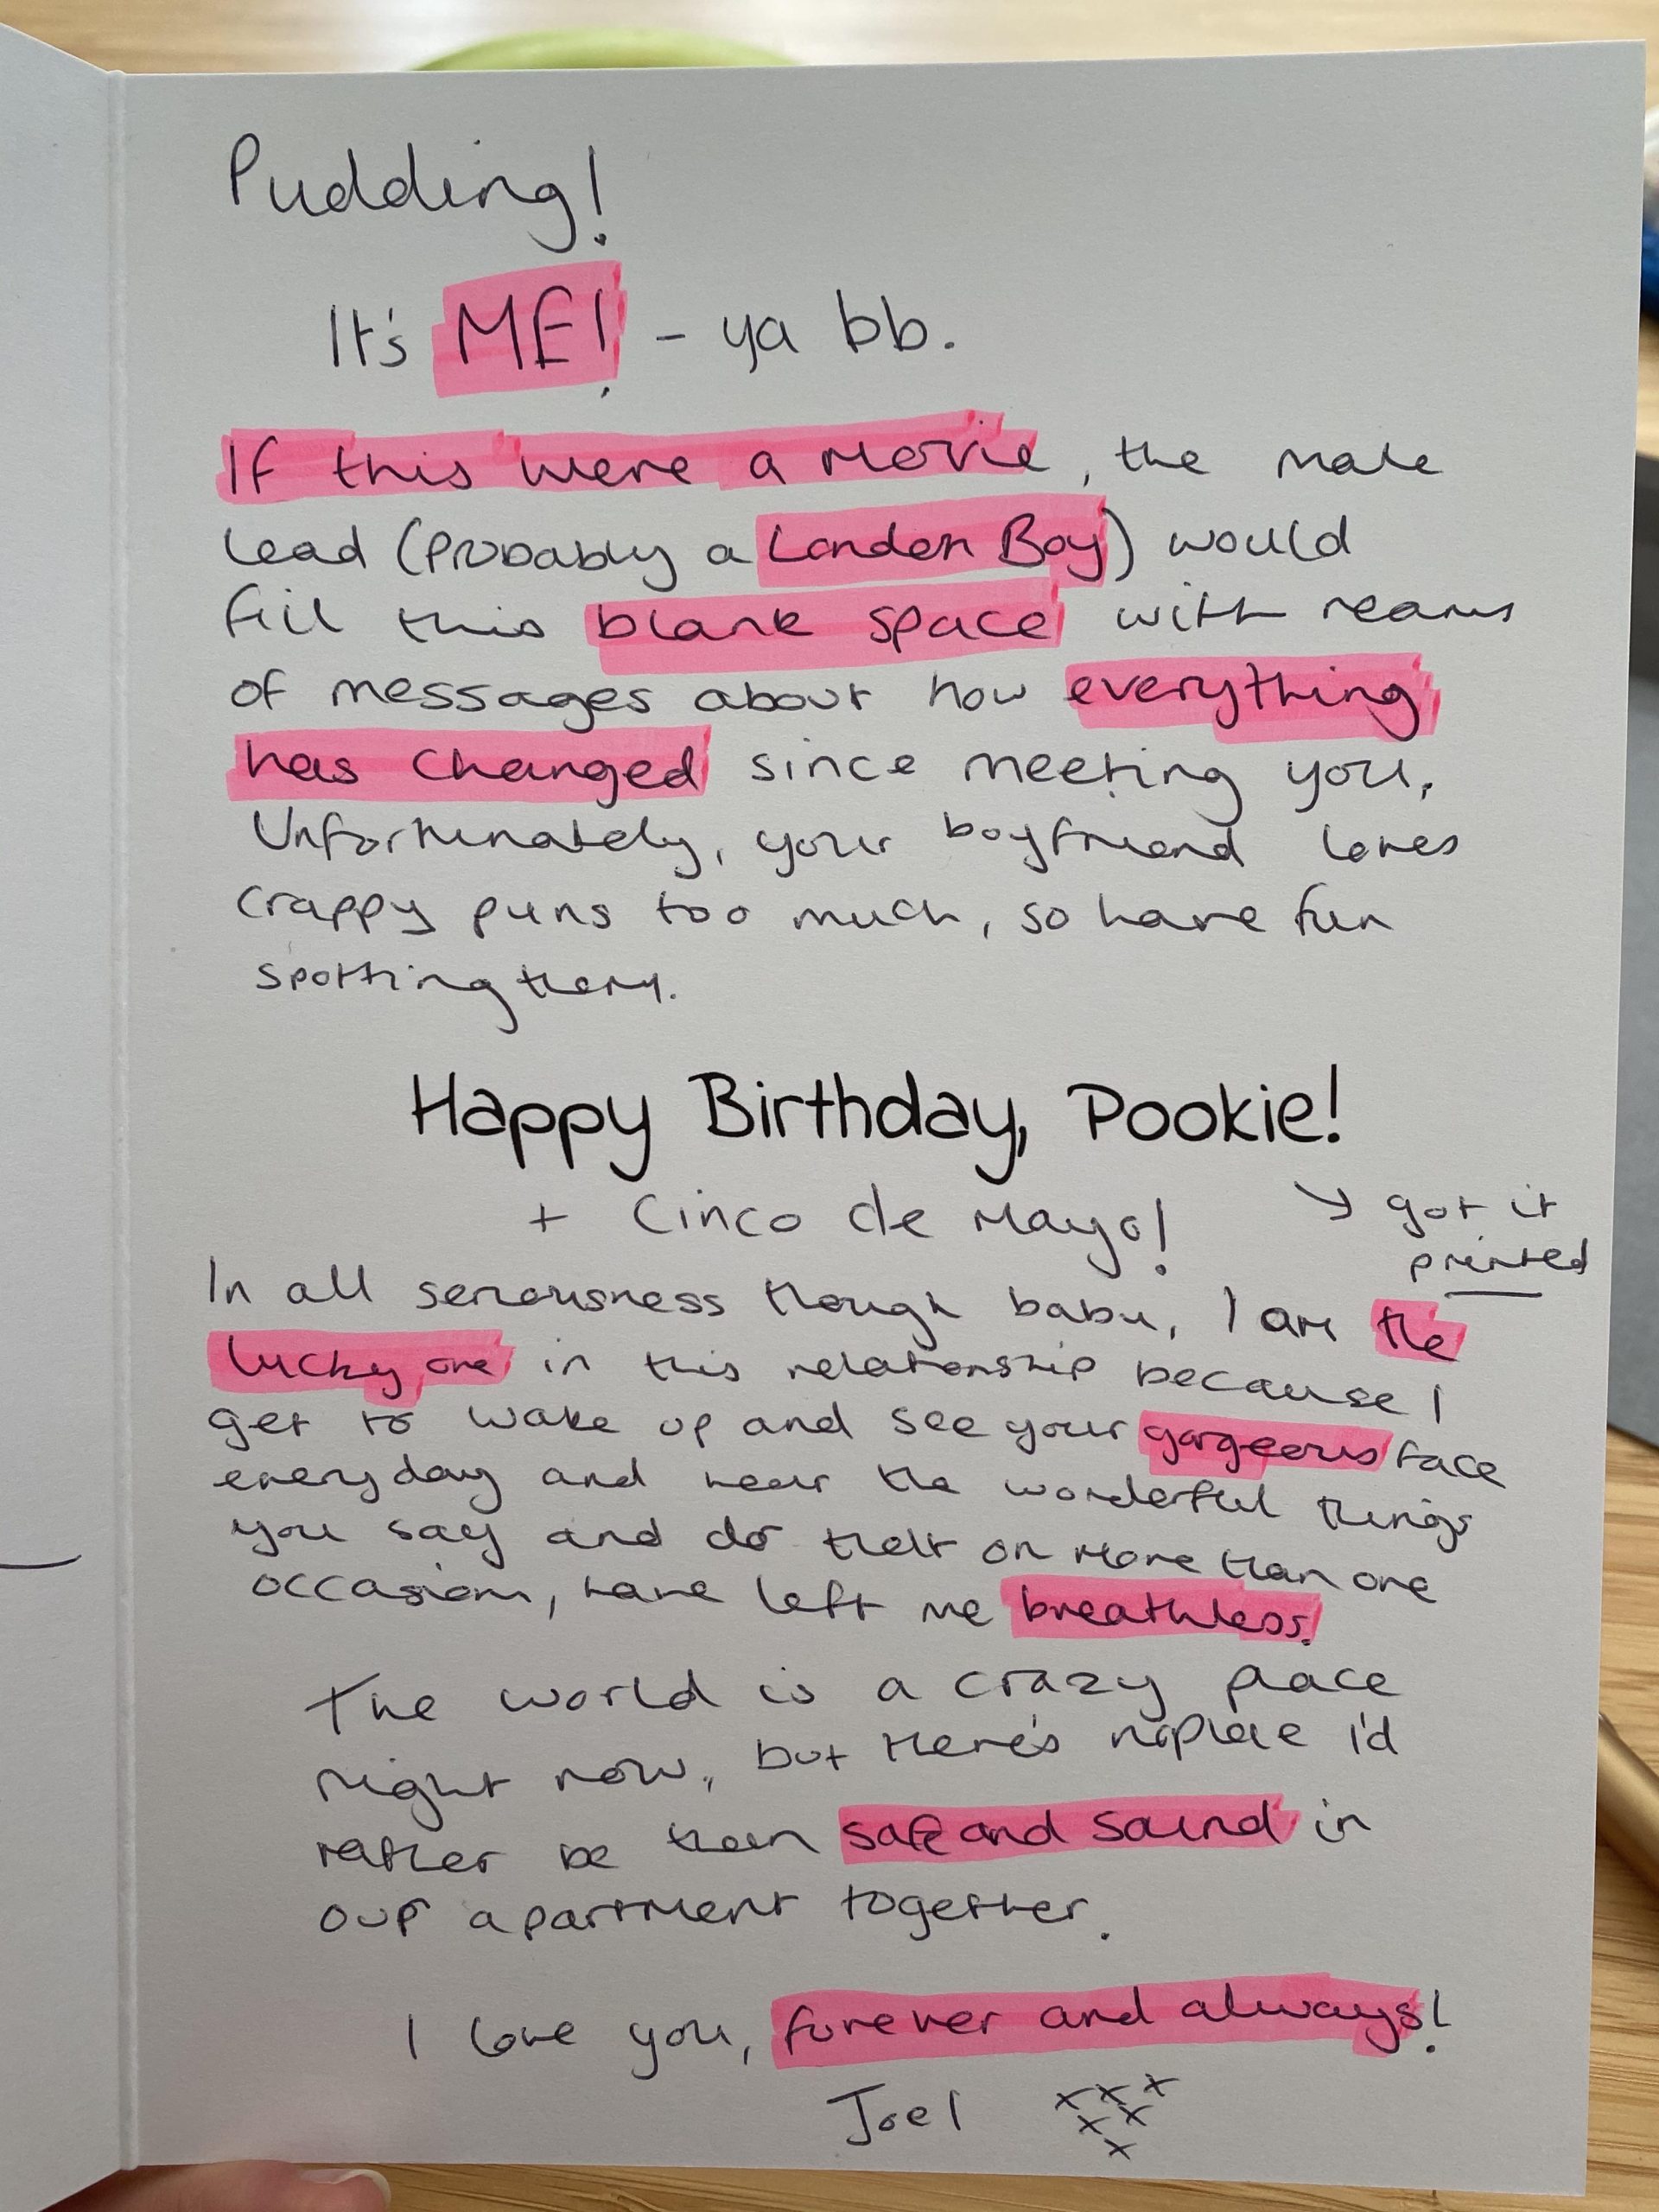 Pudding!
It's ME! - ya bb.
If this were a movie, the male
lead (probably a London Boy) would
fill this blank space with reams
of messages about how everything
has changed since meeting you,
Unfortunately, your boyfriend loves
crappy puns too much, so have fun
spotting them.
Happy Birthday, Pookie!
+ Cinco de Mayo!
↘ got it
printed
In all seriousness though babu, I am the
lucky one in this relationship because I
get to wake up and see your gorgeous face
everyday and hear the wonderful things
you say and do that on more than one
occasion, have left me breathless.
The world is a crazy place
right now, but there's noplace I'd
rather be than safe and sound in
our apartment together.
I love you, forever and always!
Joel xxx
xx
x